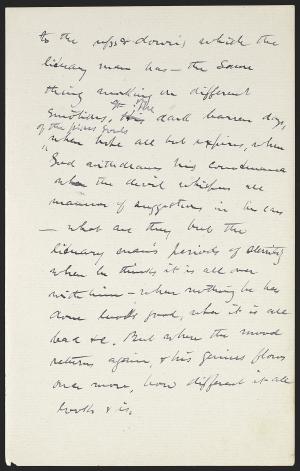 to the ups & downs which the
literary man has — the same
thing working on different
emotions. The dark barren days,
of the pious souls
when hope all but expires, when
God withdraws his countenance
when the devil whispers all
manner of suggestions in his ear
— what are they but the
literary man's periods of sterility
when he thinks it is all over
with him — when nothing he has
done looks good, when it is all
bad &c. But when the mood
returns again, & his genius flows
once more, how different it all
looks & is.